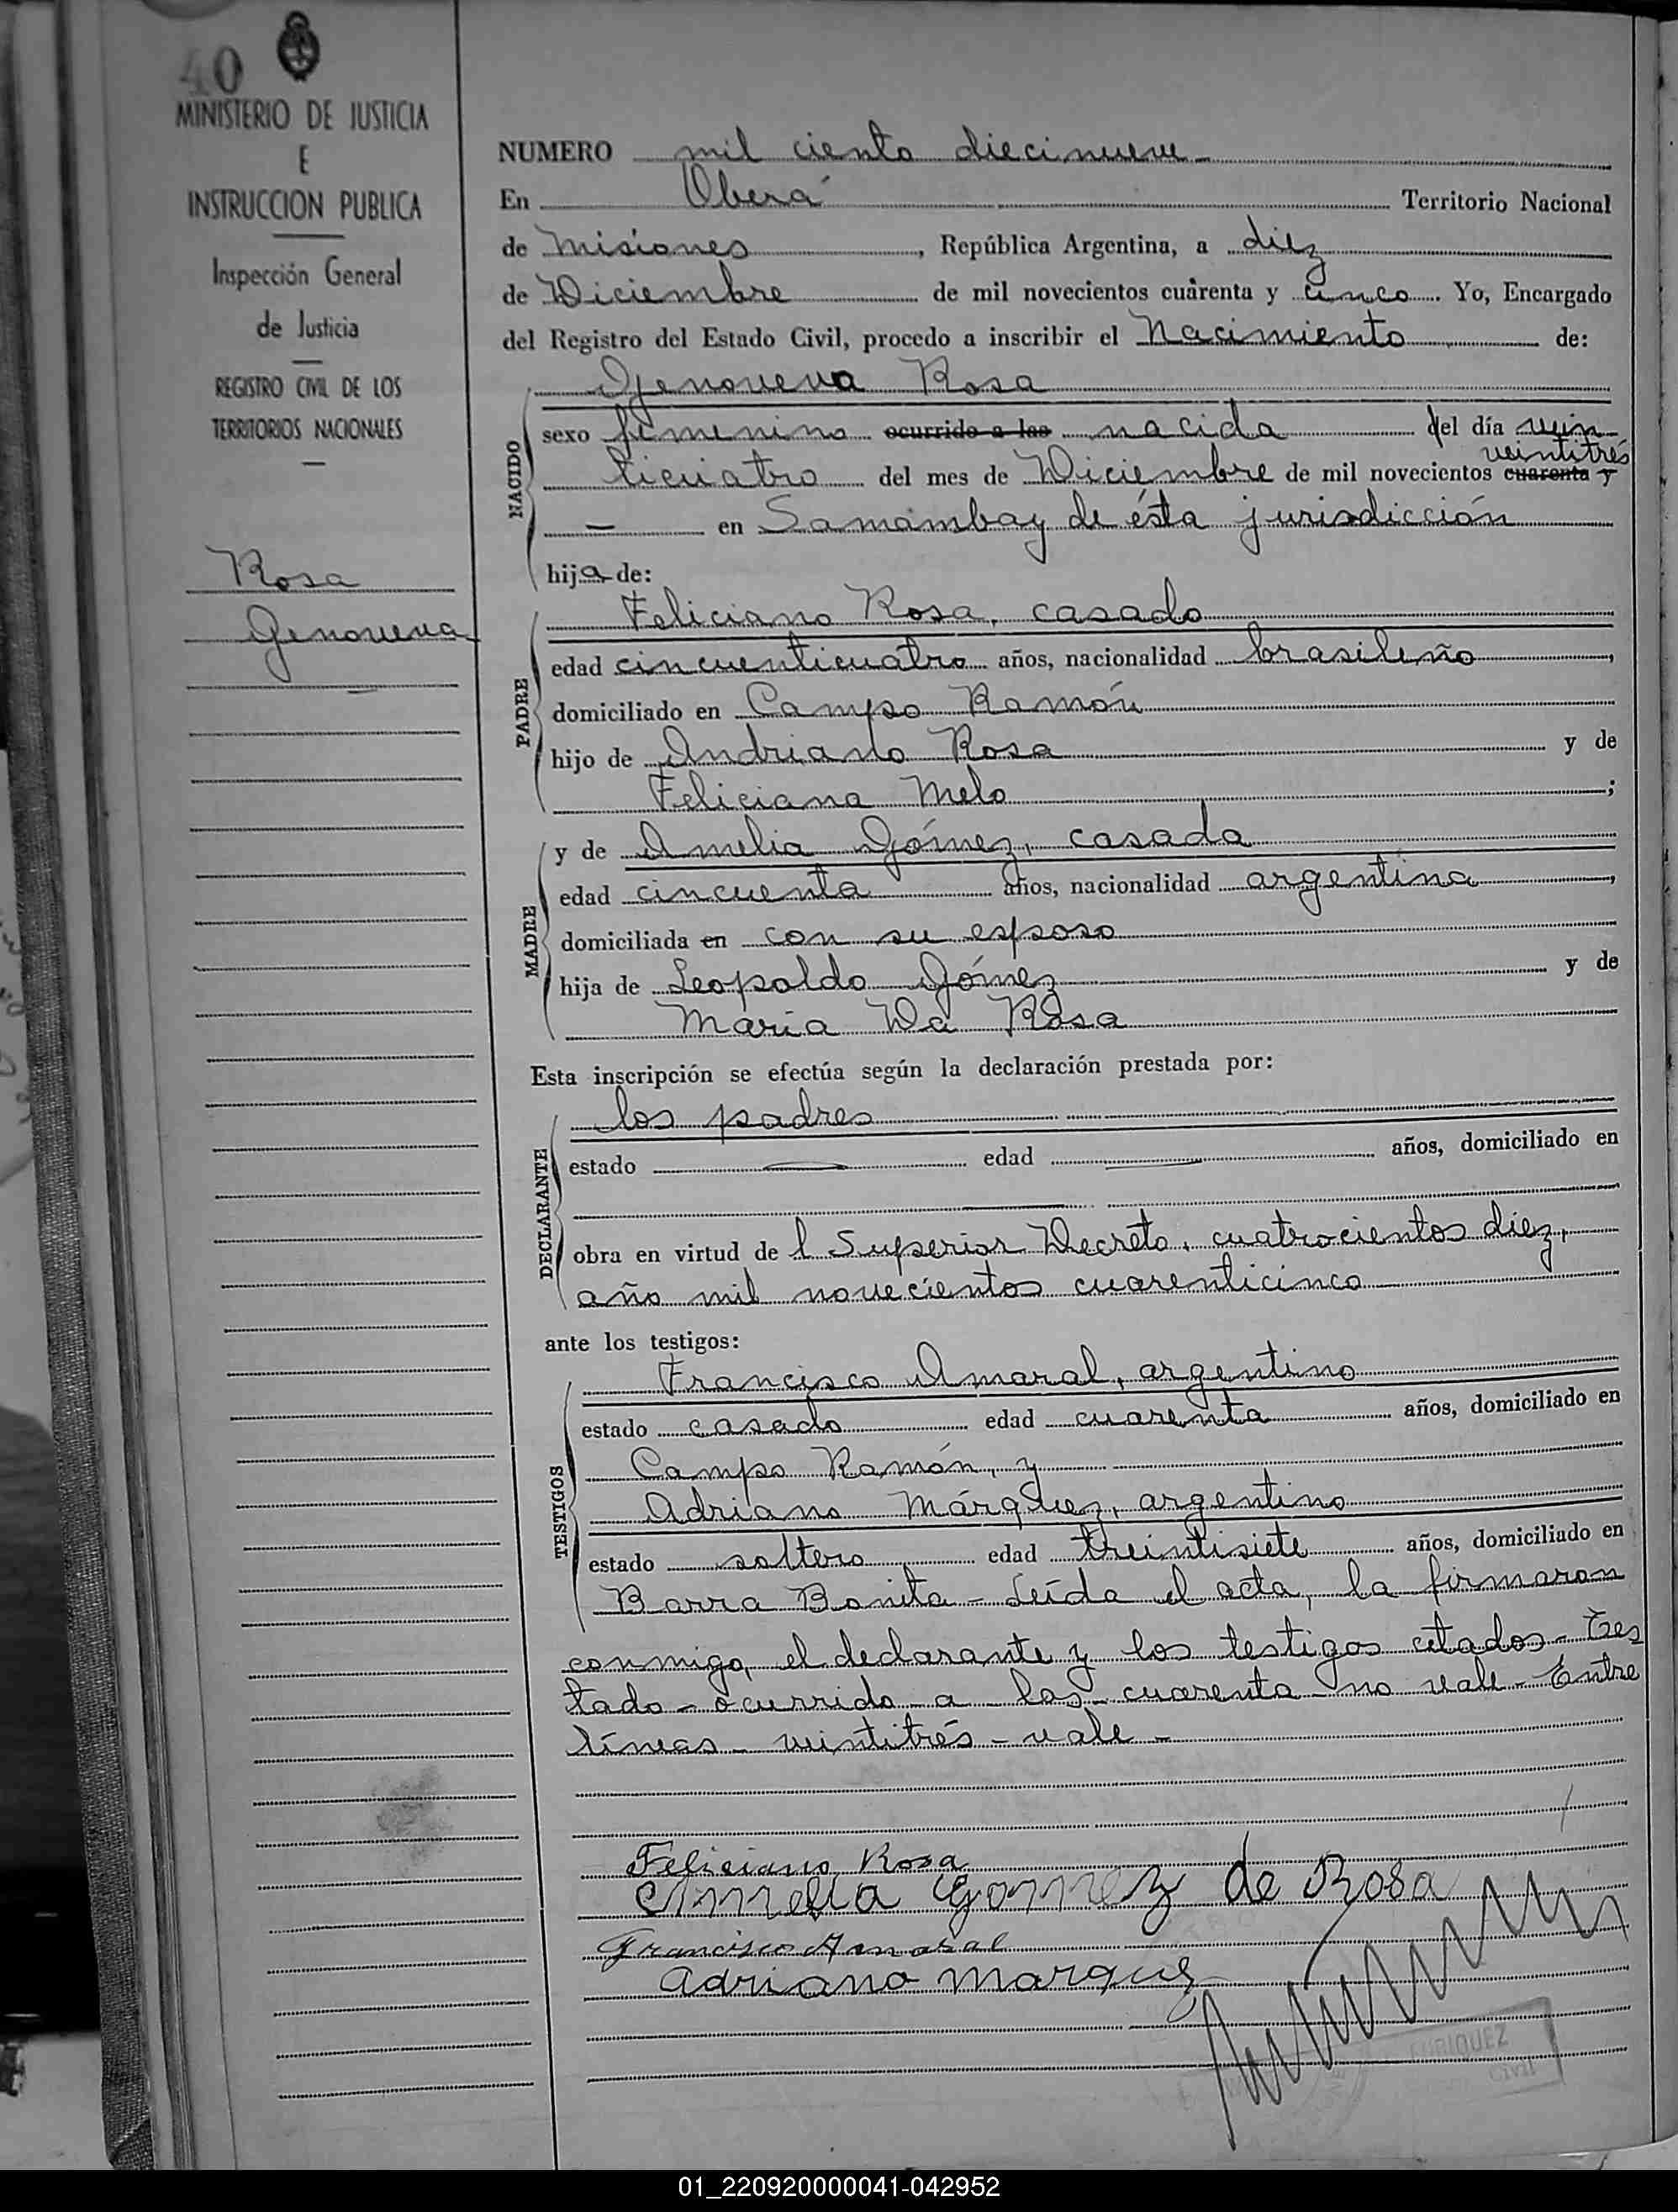 40
MINISTERIO DE JUSTICIA
E
INSTRUCCION PUBLICA
Inspección General
de Justicia
REGISTRO CIVIL DE LOS
TERRITORIOS NACIONALES
Rosa
Genoveva
NUMERO mil ciento diecinueve
En Oberá Territorio Nacional
de Misiones, República Argentina, a diez
de Diciembre de mil novecientos cuarenta y cinco. Yo, Encargado
del Registro del Estado Civil, procedo a inscribir el Nacimiento de:
Genoveva Rosa
NACIDO
sexo femenino ocurrido a las nacida del día vein
veintitrés
ticuatro del mes de Diciembre de mil novecientos cuarenta y
— en Samambay de ésta jurisdicción
hija de:
PADRE
Feliciano Rosa, casado
edad cincuenticuatro años, nacionalidad brasileño,
domiciliado en Campo Ramón
hijo de Andriano Rosa y de
Feliciana Melo;
MADRE
y de Amelia Gómez, casada
edad cincuenta años, nacionalidad argentina,
domiciliada en con su esposo
hija de Leopoldo Gómez y de
María Da Rosa
Esta inscripción se efectúa según la declaración prestada por:
DECLARANTE
los padres
estado — edad — años, domiciliado en
obra en virtud de l Superior Decreto, cuatrocientos diez,
año mil novecientos cuarenticinco
ante los testigos:
TESTIGOS
Francisco Amaral, argentino
estado casado edad cuarenta años, domiciliado en
Campo Ramón, y
Adriano Márquez, argentino
estado soltero edad treintisiete años, domiciliado en
Barra Bonita - Leída el acta, la firmaron
conmigo, el declarante y los testigos citados - Tes
tado - ocurrido a las - cuarenta - no vale - Entre
líneas - veintitrés - vale -
Feliciano Rosa
Amelia Gomez de Rosa
Francisco Amaral
Adriano Marquez
01_220920000041-042952